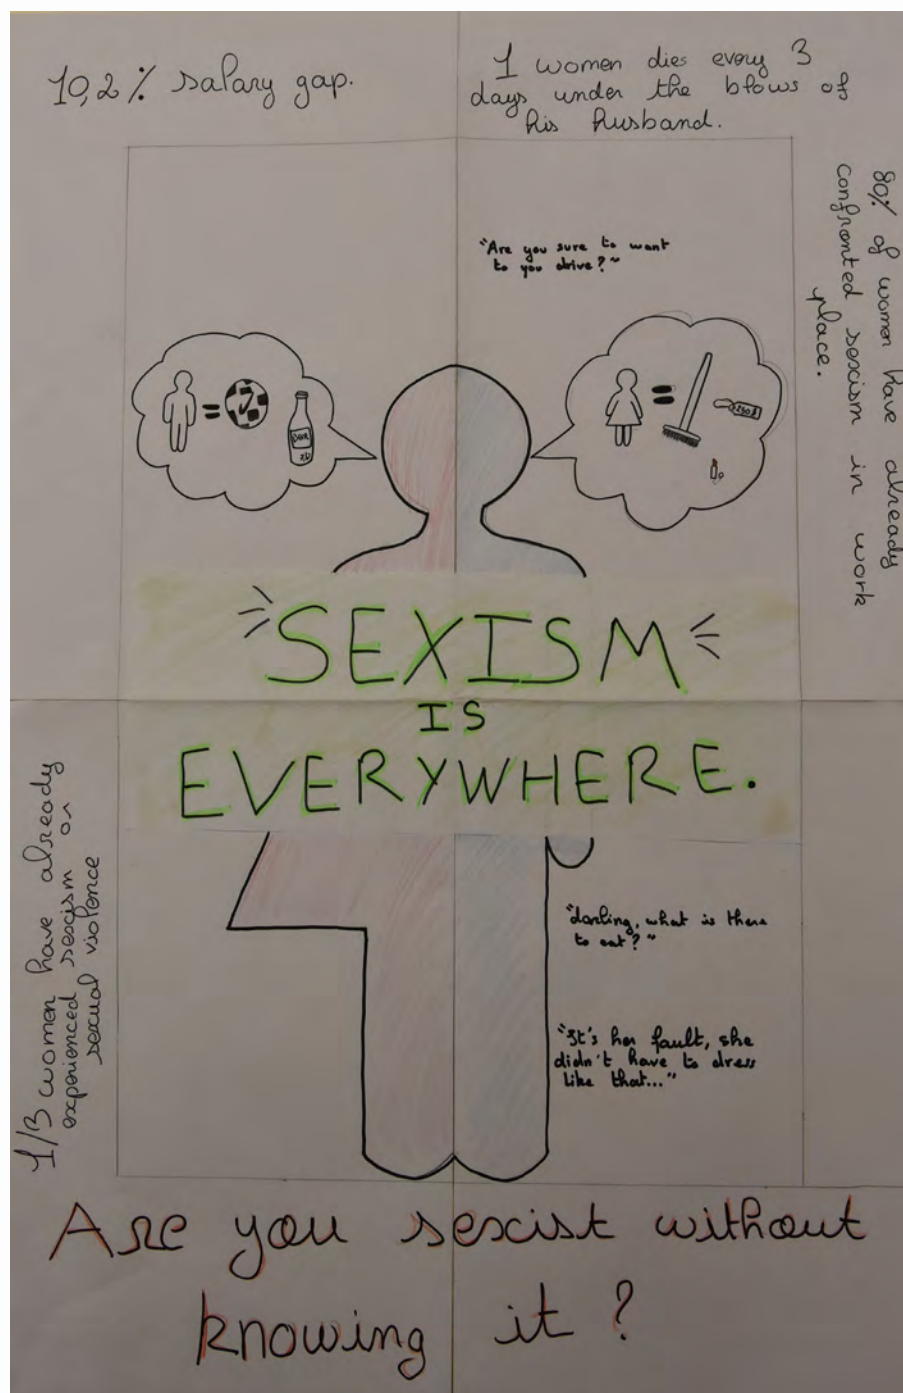 10,2% salary gap.
1 women dies every 3
days under the blows of
his husband.
80% of women have already
confronted sexism in work
place.
"Are you sure to want
to you drive?"
=
BEER
=
250$
"SEXISM"
IS
EVERYWHERE.
1/3 women have already
experienced sexism or
sexual violence
"darling, what is there
to eat?"
"It's her fault, she
didn't have to dress
like that..."
Are you sexist without
knowing it?